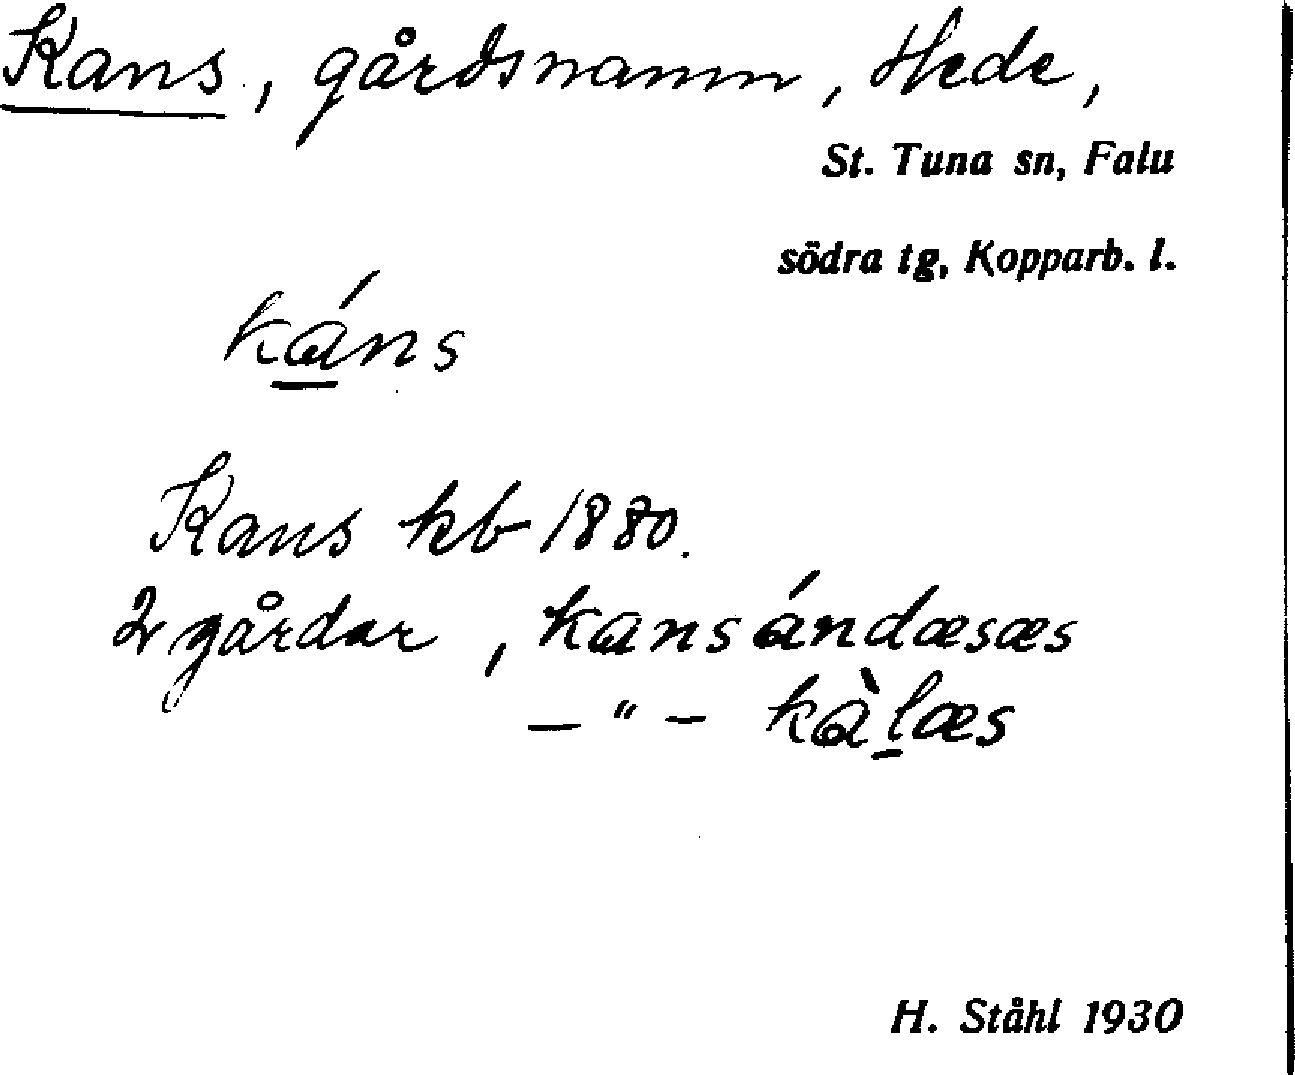 Kans, gårdsnamn, Hede,
St. Tuna sn, Falu
södra tg, Kopparb. l.
káns
Kans kb 1880.
2 gårdar, kansándæsæs
— " — kàlæs
H. Ståhl 1930